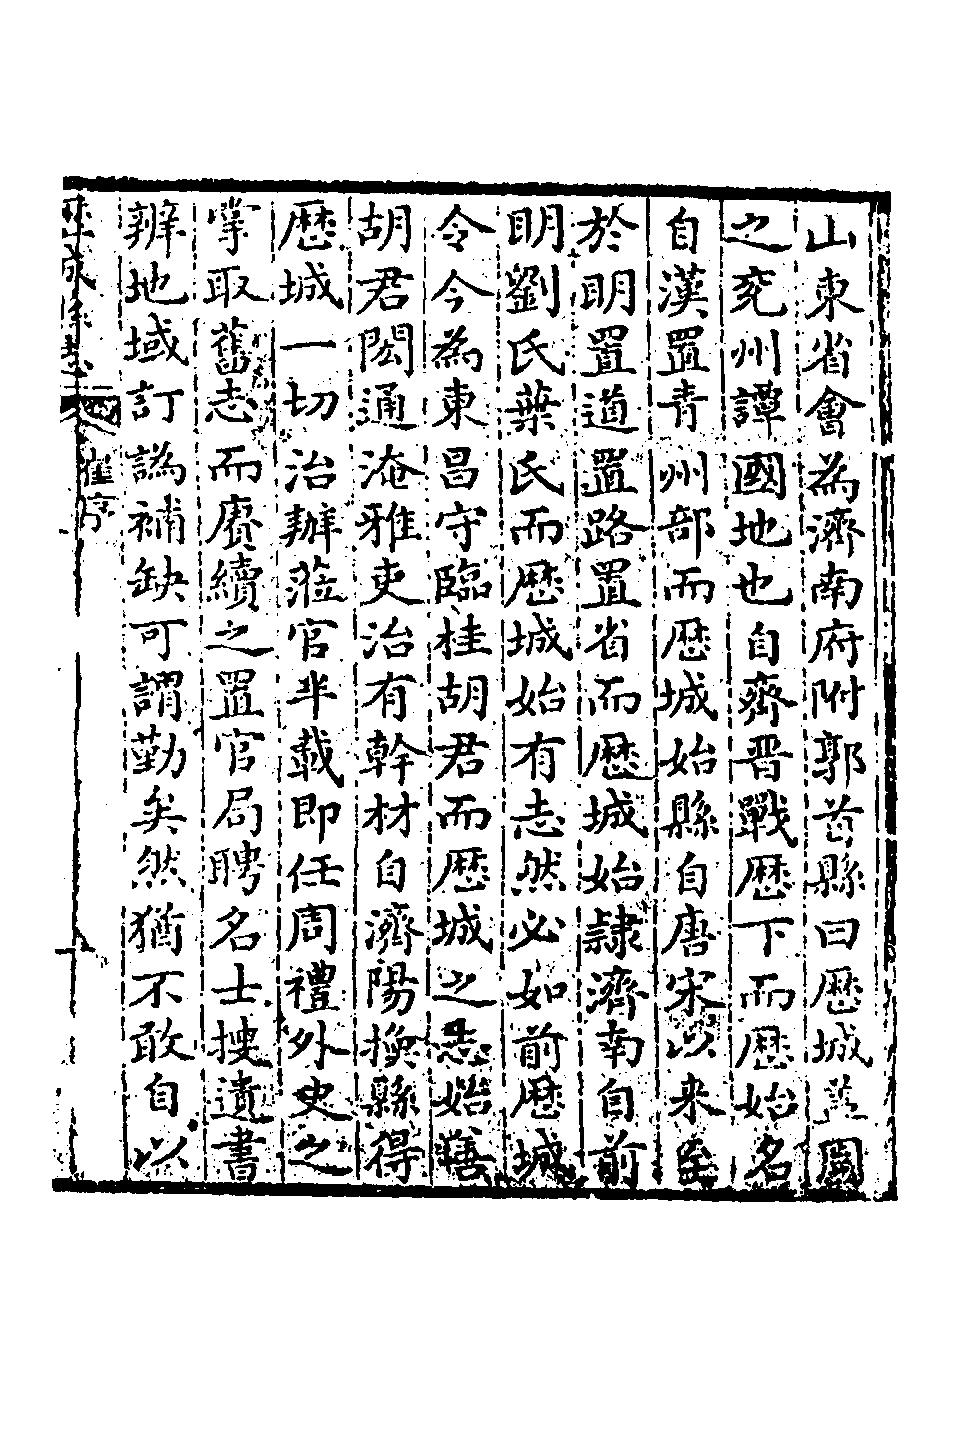 山東省會為濟南府附郭首縣曰歷城葢國
之兖州譚國地也自齊晋戰歷下而歷始名
自漢置青州部而歷城始縣自唐宋以来至
於明置道置路置省而歷城始隷濟南自前
明劉氏葉氏而歷城始有志然必如前歷城
令今為東昌守臨桂胡君而歷城之志始善
胡君閎通淹雅吏治有幹材自濟陽換縣得
歷城一切治辦蒞官半載即任周禮外史之
掌取舊志而賡續之置官局聘名士搜遺書
辨地域訂譌補缺可謂勤矣然猶不敢自以
歷城縣志 崔序